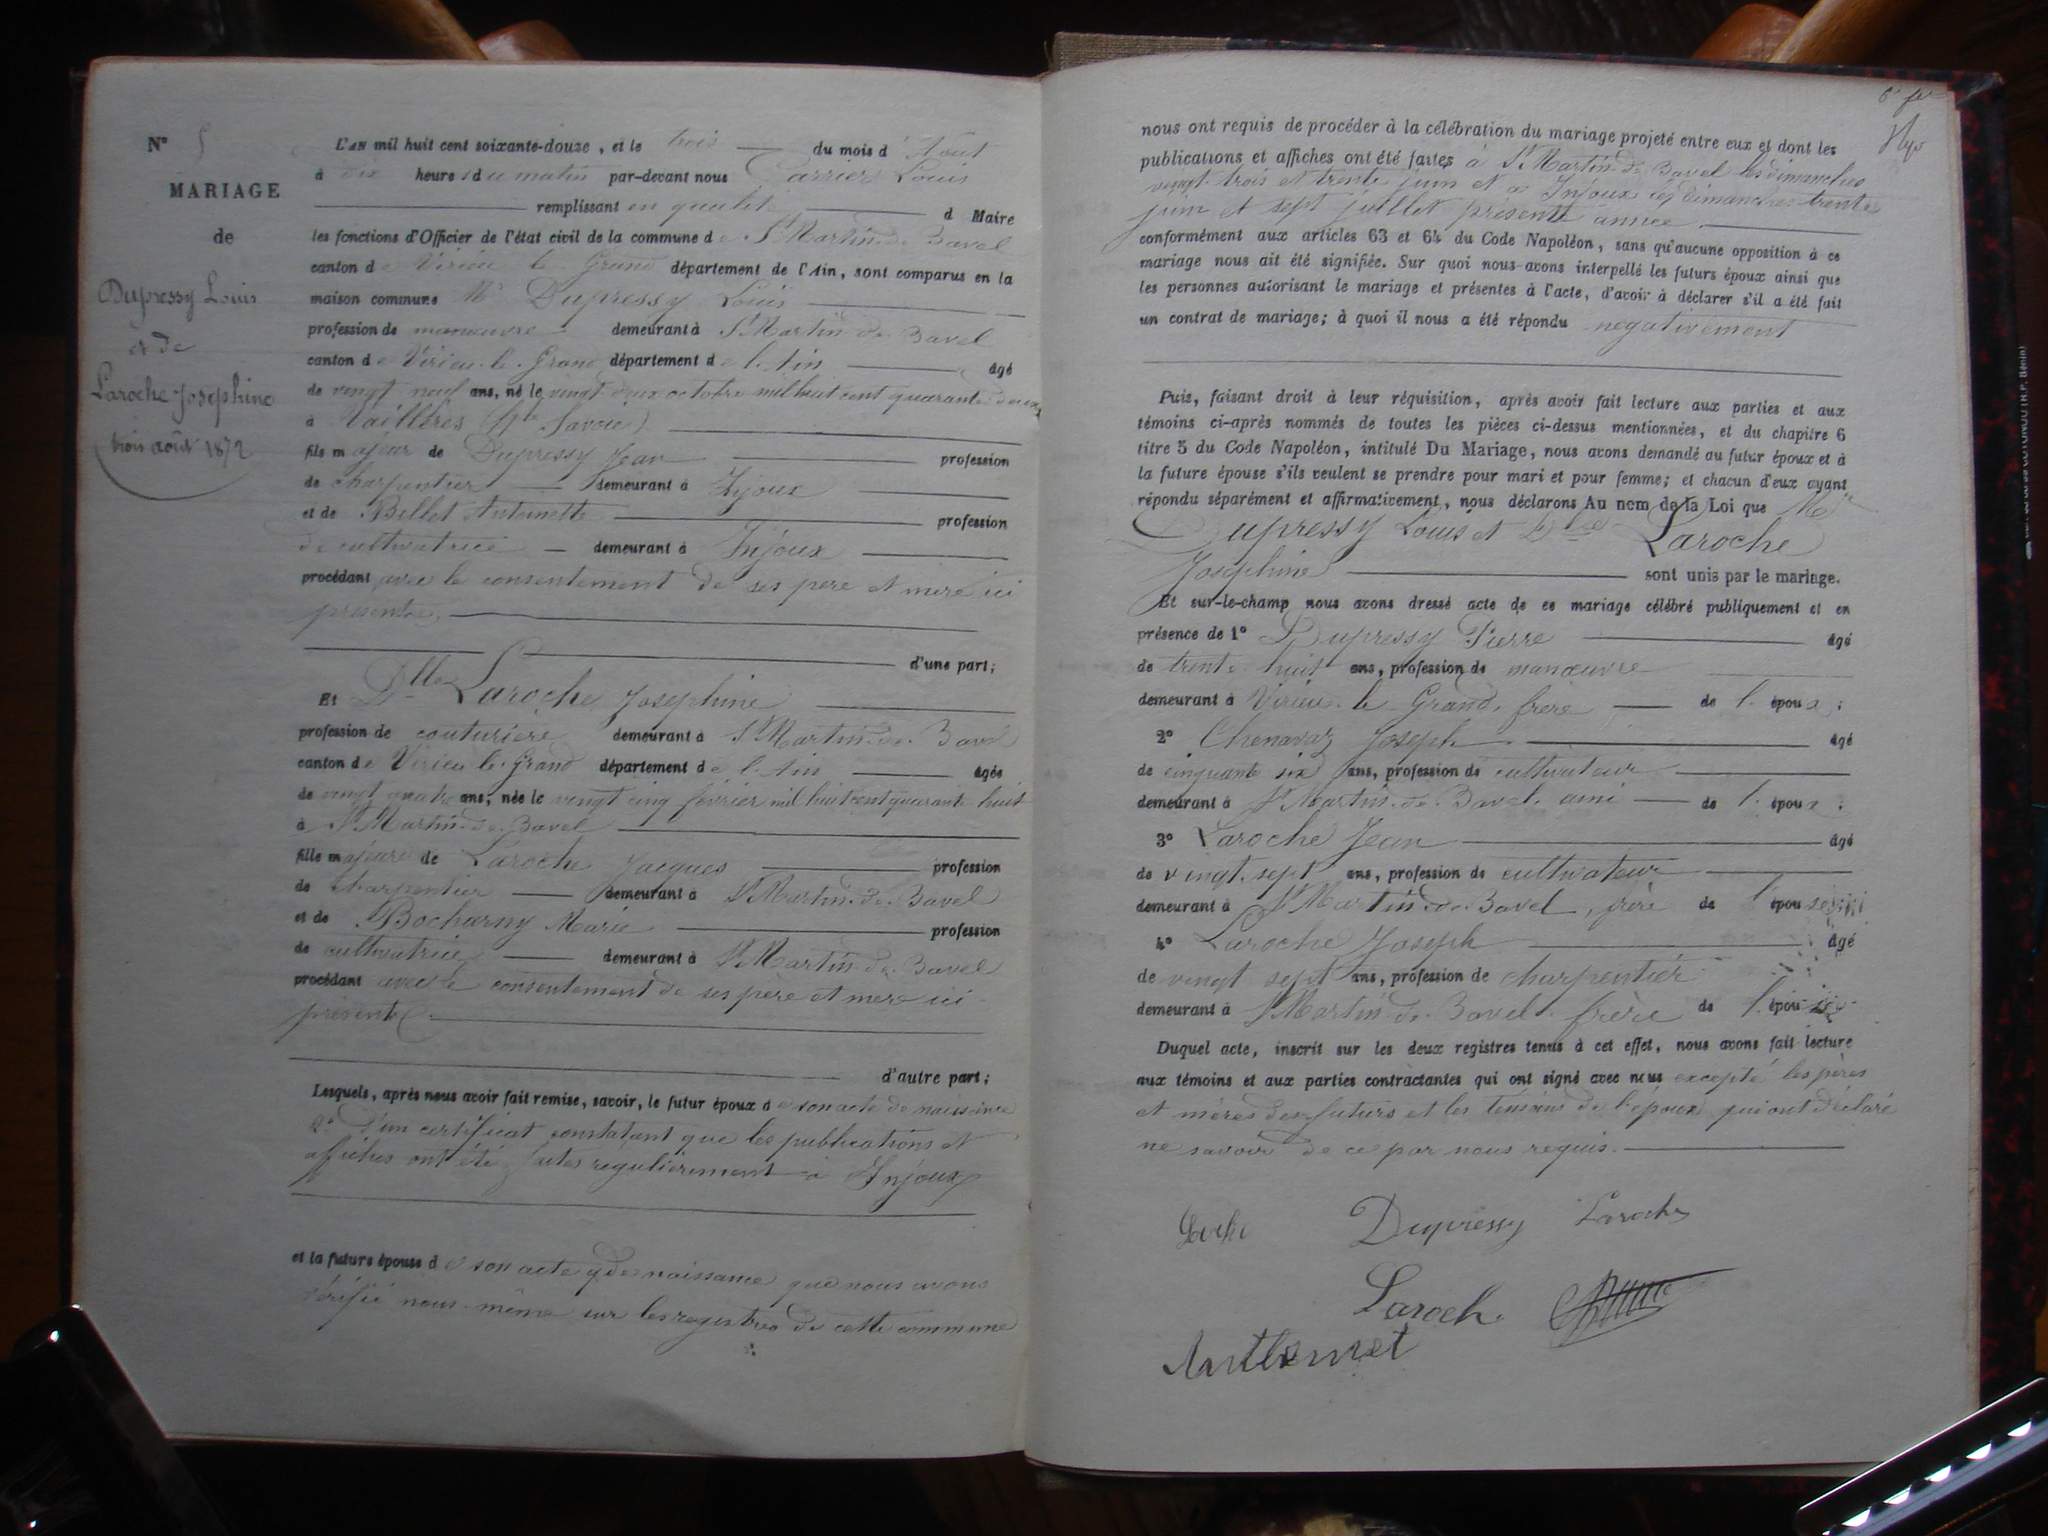 N° 5
MARIAGE
de
Dupressy Louis
et de
Laroche Josephine
trois août 1872
L'AN mil huit cent soixante-douze, et le trois du mois d'Août
à dix heures du matin par-devant nous Carrier Louis
remplissant en qualité d Maire
les fonctions d'Officier de l'état civil de la commune de St Martin de Bavel
canton de Virieu le Grand département de l'Ain, sont comparus en la
maison commune Mr Dupressy Louis
profession de manœuvre demeurant à St Martin de Bavel
canton de Virieu-le-Grand département de l'Ain âgé
de vingt neuf ans, né le vingt deux octobre mil huit cent quarante deux
à Vallières (Hte Savoie)
fils majeur de Dupressy Jean profession
de charpentier demeurant à Injoux
et de Billet Antoinette profession
de cultivatrice demeurant à Injoux
procédant avec le consentement de ses père et mère ici
présents,
d'une part;
Et Dlle Laroche Josephine
profession de couturière demeurant à St Martin-de-Bavel
canton de Virieu-le-Grand département de l'Ain âgée
de vingt quatre ans, née le vingt cinq février mil huit cent quarante huit
à St Martin-de-Bavel
fille majeure de Laroche Jacques profession
de charpentier demeurant à St Martin-de-Bavel
et de Bocharny Marie profession
de cultivatrice demeurant à St Martin-de-Bavel
procédant avec le consentement de ses père et mère ici
présents
d'autre part;
Lesquels, après nous avoir fait remise, savoir, le futur époux de son acte de naissance
2° d'un certificat constatant que les publications et
affiches ont été faites regulièrement à Injoux
et la future épouse de son acte de naissance que nous avons
vérifié nous-même sur les registres de cette commune
nous ont requis de procéder à la célébration du mariage projeté entre eux et dont les
publications et affiches ont été faites à St Martin-de-Bavel les dimanches
vingt-trois et trente juin et à Injoux les dimanches trente
juin et sept juillet présente année
conformément aux articles 63 et 64 du Code Napoléon, sans qu'aucune opposition à ce
mariage nous ait été signifiée. Sur quoi nous avons interpellé les futurs époux ainsi que
les personnes autorisant le mariage et présentes à l'acte, d'avoir à déclarer s'il a été fait
un contrat de mariage; à quoi il nous a été répondu negativement
Puis, faisant droit à leur réquisition, après avoir fait lecture aux parties et aux
témoins ci-après nommés de toutes les pièces ci-dessus mentionnées, et du chapitre 6
titre 5 du Code Napoléon, intitulé Du Mariage, nous avons demandé au futur époux et à
la future épouse s'ils veulent se prendre pour mari et pour femme; et chacun d'eux ayant
répondu séparément et affirmativement, nous déclarons Au nom de la Loi que Mr
Dupressy Louis et Dlle Laroche
Josephine sont unis par le mariage.
Et sur-le-champ nous avons dressé acte de ce mariage célébré publiquement et en
présence de 1° Dupressy Pierre âgé
de trente huit ans, profession de manœuvre
demeurant à Virieu-le-Grand, frère de l'époux;
2° Chenavaz Joseph âgé
de cinquante six ans, profession de cultivateur
demeurant à St Martin-de-Bavel, ami de l'époux;
3° Laroche Jean âgé
de vingt-sept ans, profession de cultivateur
demeurant à St Martin-de-Bavel, frère de l'épouse
4° Laroche Joseph âgé
de vingt sept ans, profession de charpentier
demeurant à St Martin-de-Bavel frère de l'épouse
Duquel acte, inscrit sur les deux registres tenus à cet effet, nous avons fait lecture
aux témoins et aux parties contractantes qui ont signé avec nous excepté les pères
et mères des futurs et les témoins de l'époux qui ont déclaré
ne savoir de ce par nous requis.
Dupressy Laroche
Laroch
Anthemet